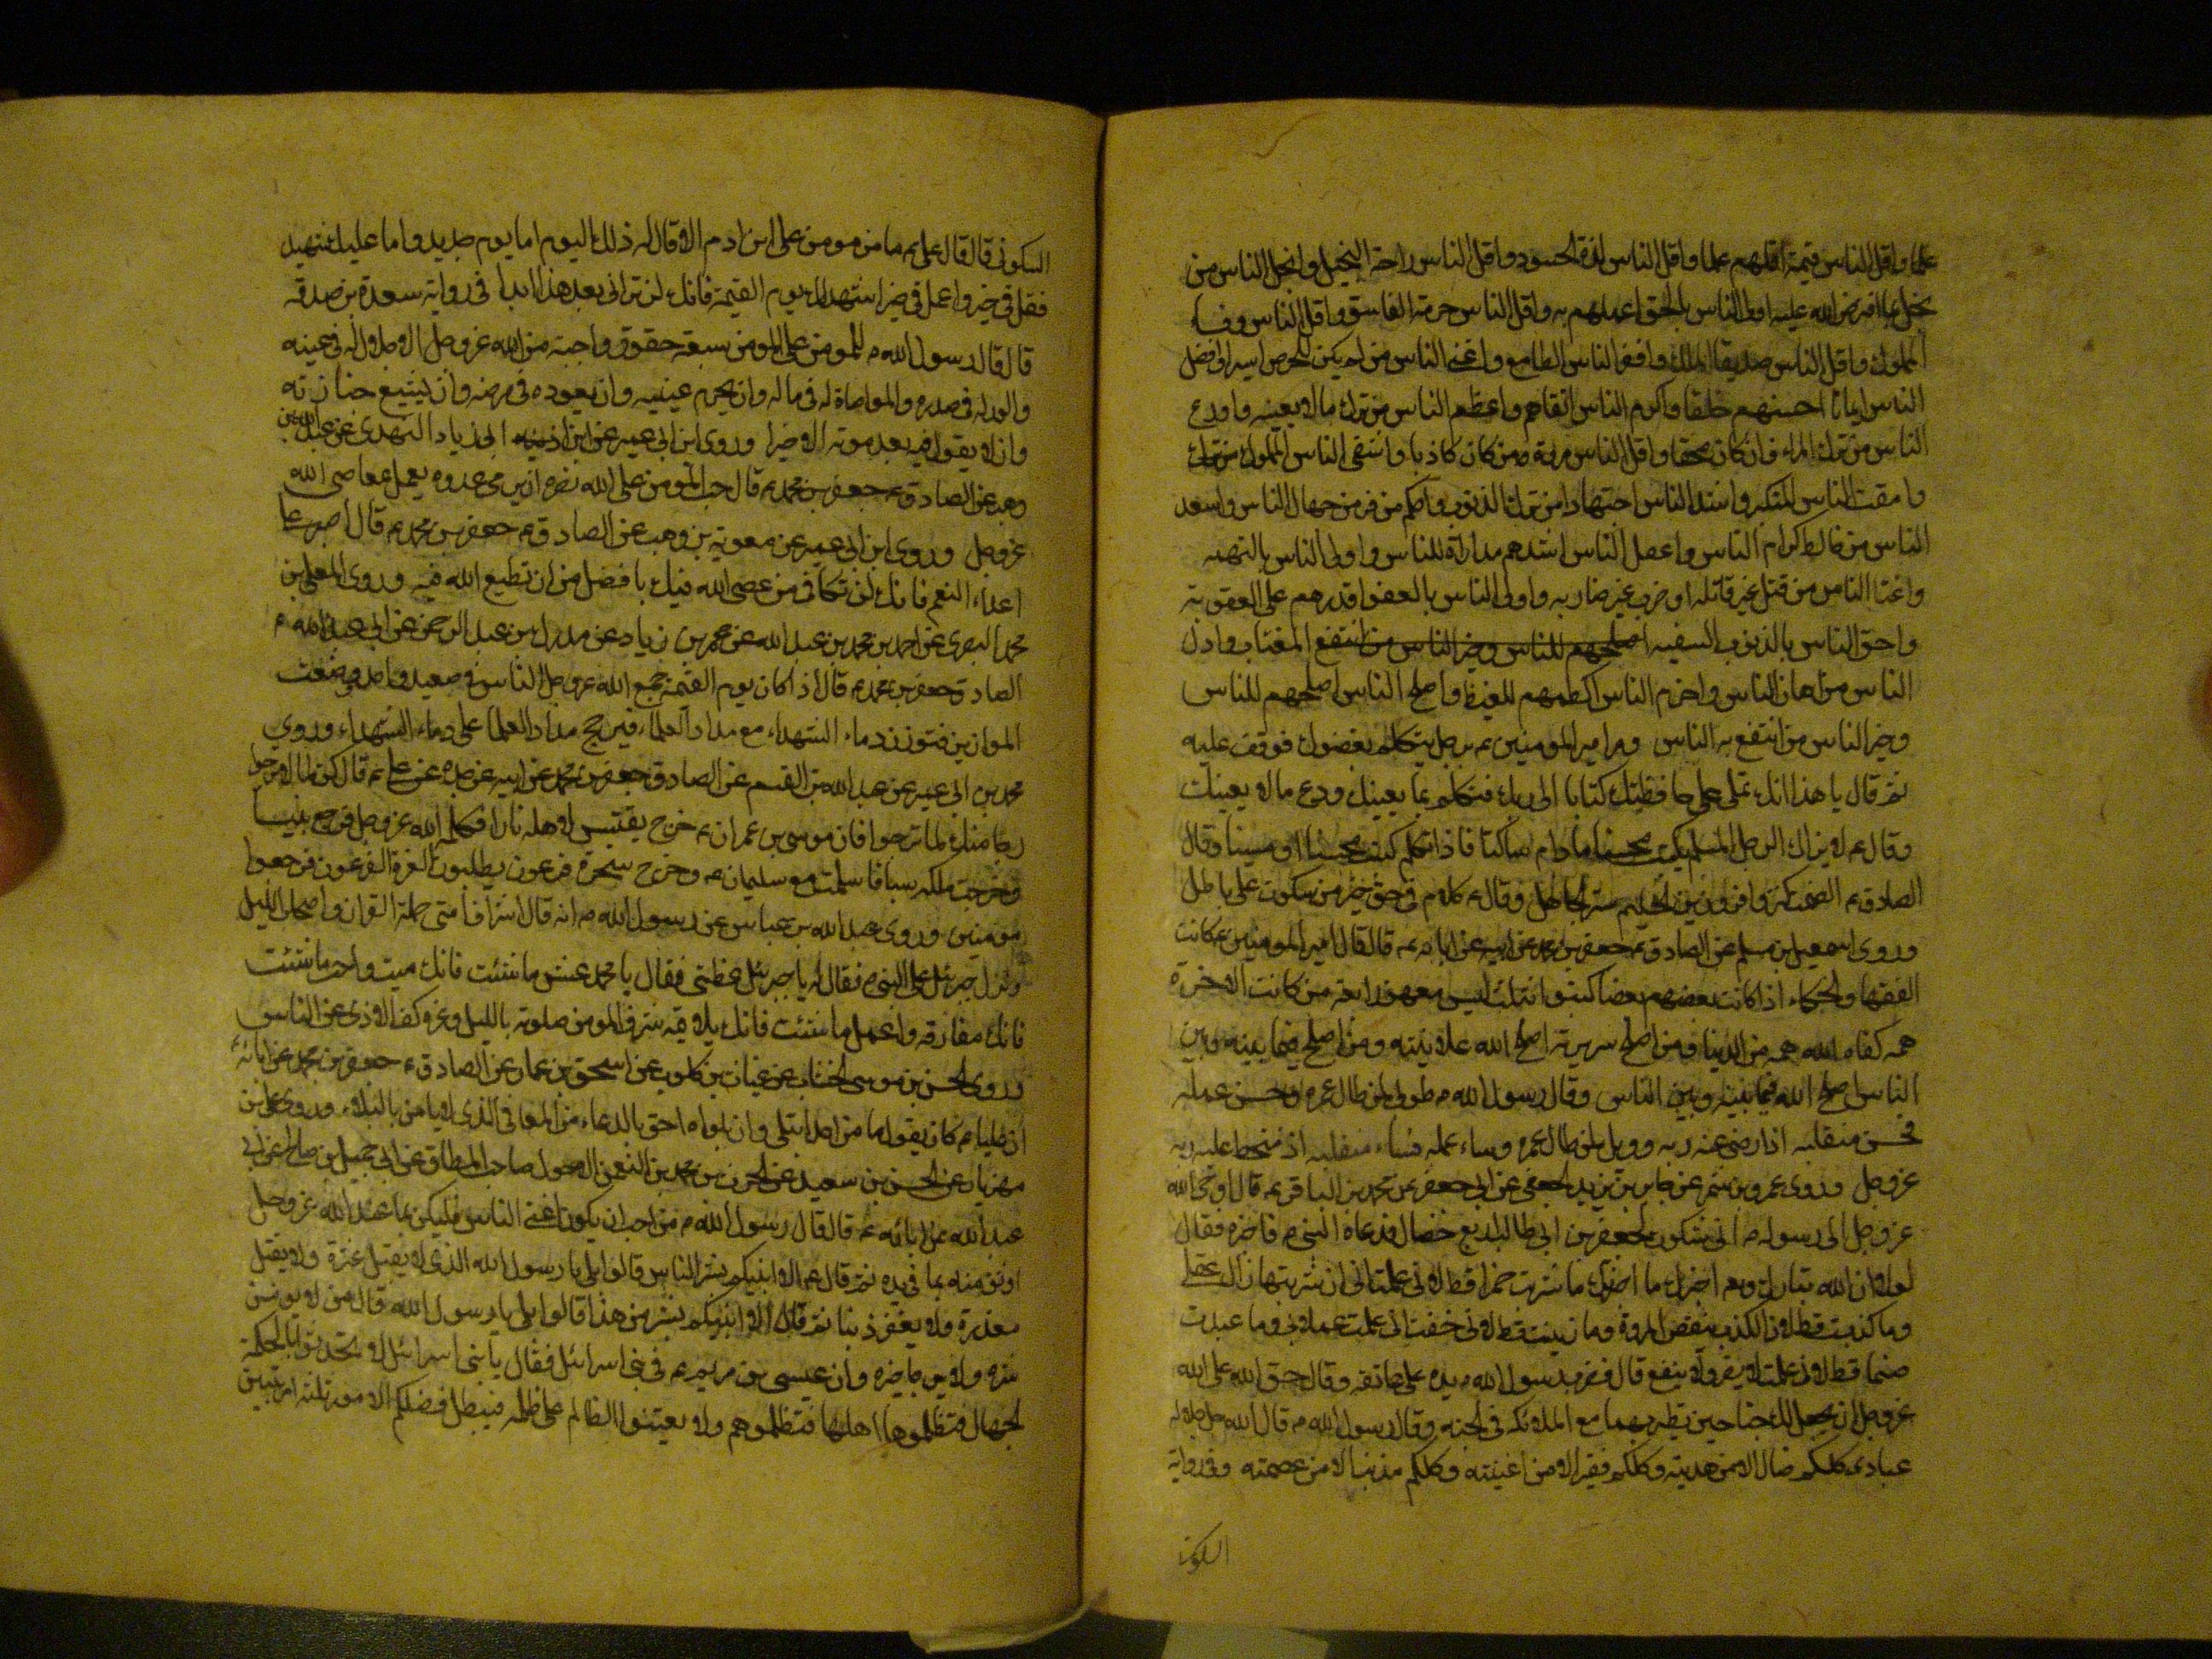 علما واقل الناس قيمة اقلهم علما واقل الناس لذة الحسود واقل الناس راحة البخيل وابخل الناس من
بخل بما افترض الله عليه اولى الناس بالحق اعملهم به واقل الناس حرمة الفاسق واقل الناس وفاء
المملوك واقل الناس صديقا الملك وافقر الناس الطامع واغنى الناس من لم يكن للحرص اسيرا وافضل
الناس ايمانا احسنهم خلقا واكرم الناس اتقاهم واعظم الناس من ترك مالا يعينه واورع
الناس من ترك المراء وان كان محقا واقل الناس مروة من كان كاذبا واشقى الناس الملوك
وامقت الناس المتكبر واشد الناس اجتهادا من ترك الذنوب واحكم من فر من جهال الناس واسعد
الناس من خالط كرام الناس واعقل الناس اشدهم مداراة للناس واولى الناس بالتهمه
واعتا الناس من قتل غير قاتله او ضرب غير ضاربه واولى الناس بالعفو اقدرهم على العقوبة
واحق الناس بالذنب السفيه اصلحهم للناس وخير الناس من انتفع المغتاب واذل
الناس من اهان الناس واحزم الناس اكظمهم للغيظ واصلح الناس اصلحهم للناس
وخير الناس من انتفع به الناس ومر امير المومنين ع برجل يتكلم بفضول فوقف عليه
ثم قال يا هذا انك تملى على حافظيك كتابا الى ربك فتكلم بما يعينك ودع مالا يعينك
وقال ع لا يزال الرجل المسلم يكتب محسنا مادام ساكتا فاذا تكلم كتب محسنا او مسيئا وقال
الصادق ع الصمت كنز وافر وزين الحليم وستر الجاهل وقال ع كلام فى حق خير من سكوت على باطل
وروى اسمعيل بن مسلم عن الصادق ع جعفر بن محمد عن ابيه عن ابائه ع قال قال امير المومنين ع كانت
الفقها والحكماء اذا كاتب بعضهم بعضا كتبوا بثلث ليس معهن رابعة من كانت الاخرة
همه كفاه الله همه من الدنيا ومن اصلح سريرته اصلح الله علانيته ومن اصلح فيما بينه وبين
الناس اصلح الله فيما بينه وبين الناس وقال رسول الله م طوبى لمن طال عمره وحسن عمله
فحسن منقلبه اذا رضى عنه ربه وويل لمن طال عمره وساء عمله فساء منقلبه اذ سخط عليه ربه
عز وجل وروى عمرو بن شمر عن جابر بن يزيد الجعفى عن ابى جعفر محمد بن الباقر ع قال اوحى الله
عز وجل الى رسوله م انى شكرت لجعفر بن ابى طالب اربع خصال فدعاه النبى م فاخبره فقال
لولا ان الله تبارك وتع اخبرك ما اخبرتك ما شربت خمرا قط لانى علمت انى ان شربتها زال عقلى
وما كذبت قط لان الكذب ينقص المروة وما زنيت قط لانى خفت انى عملت عمل بى وما عبدت
صنما قط لانى علمت لا يضر ولا ينفع قال فضرب رسول الله م يده على عاتقه وقال حق الله على الله
عز وجل ان يجعل لك جناحين تطير بهما مع الملائكه فى الجنه وقال رسول الله م قال الله جل جلاله
عبادى كلكم ضال الا من هديته وكلكم فقير الا من اغنيته وكلكم مذنب الا من عصمته وفى رواية
السكونى
السكونى قال قال على ع ما من يوم يمر على ابن ادم الا قال له ذلك اليوم انا يوم جديد وانا عليك شهيد
فقل فى خيرا واعمل فى خيرا اشهد لك يوم القيمة فانك لن ترانى بعد هذا ابدا فى رواية مسعدة بن صدقه
قال قال رسول الله م للمومن على المومن سبعة حقوق واجبة من الله عز وجل الاجلال له فى عينه
والود له فى صدره والمواساة له فى ماله وان يحرم غيبته وان يعوده فى مرضه وان يشيع جنازته
وان لا يقول فيه بعد موته الا خيرا وروى ابن ابى عمير عن ابن ابى زياد النهدى عن عبد الله بن
وهب عن الصادق ع جعفر بن محمد ع قال حسب المومن من الله نصره ان يرى عدوه يعمل بمعاصى الله
عز وجل وروى ابن ابى عمير عن معوية بن وهب عن الصادق ع جعفر بن محمد ع قال اصبر على
اعداء النعم فانك لن تكافى من عصى الله فيك بافضل من ان تطيع الله فيه وروى المعلى بن
محمد البصرى عن احمد بن محمد بن عبد الله عن عمرو بن زياد عن مدرك بن عبد الرحمن عن ابى عبد الله
الصادق جعفر بن محمد ع قال اذا كان يوم القيمة جمع الله عز وجل الناس فى صعيد واحد ووضعت
الموازين فتوزن دماء الشهداء مع مداد العلماء فيرجح مداد العلما على دماء الشهداء وروى
محمد بن ابى عمير عن عبد الله بن القسم عن الصادق جعفر بن محمد عن ابيه عن جده عن على ع قال كن لما لا ترجوا
ارجا منك لما ترجوا فان موسى بن عمران ع خرج يقتبس لاهله نارا فكلمه الله عز وجل فرجع نبيا
وخرجت ملكه سبا فاسلمت مع سليمان ع وخرج سحرة فرعون يطلبون العزة لفرعون فرجعوا
مومنين وروى عبد الله بن عباس عن رسول الله م انه قال اشراف امتى حملة القران واصحاب الليل
ونزل جبرئيل على النبى م فقال له يا جبرئيل عظنى فقال يا محمد عش ما شئت فانك ميت واحبب ما شئت
فانك مفارقه واعمل ما شئت فانك ملاقيه شرف المومن صلوته بالليل وعزه كف الاذى عن الناس
وروى الحسن بن موسى الخشاب عن غياث بن كلوب عن اسحق بن عمار عن الصادق ع جعفر بن محمد عن ابائه
ان عليا ع كان يقول ما من احد ابتلى وان عظمت بلواه احق بالدعاء من المعافى الذى لا يامن بالبلاء وروى على بن
مهزيار عن الحسن بن سعيد عن الحرث بن محمد بن النعمن الاحول صاحب الطاق عن ابى جميل بن صالح عن ابى
عبد الله عن ابائه ع قال قال رسول الله م من احب ان يكون اغنى الناس فليكن بما عند الله عز وجل
اوثق منه بما فى يده ثم قال ع الا انبئكم بشر الناس قالوا بلى يا رسول الله الذى لا يقيل عثرة ولا يقبل
معذرة ولا يغفر ذنبا ثم قال الا انبئكم بشر من هذا قالوا بلى يا رسول الله قال من لا يومن
شره ولا يرجا خيره وان عيسى بن مريم ع فى بنى اسرائيل فقال يا بنى اسرائيل لا تحدثوا بالحكمة
الجهال فتظلموها اهلها فتظلموهم ولا يعينوا الظالم على ظلمه فيبطل فضلكم الامور ثلثه امر تبين